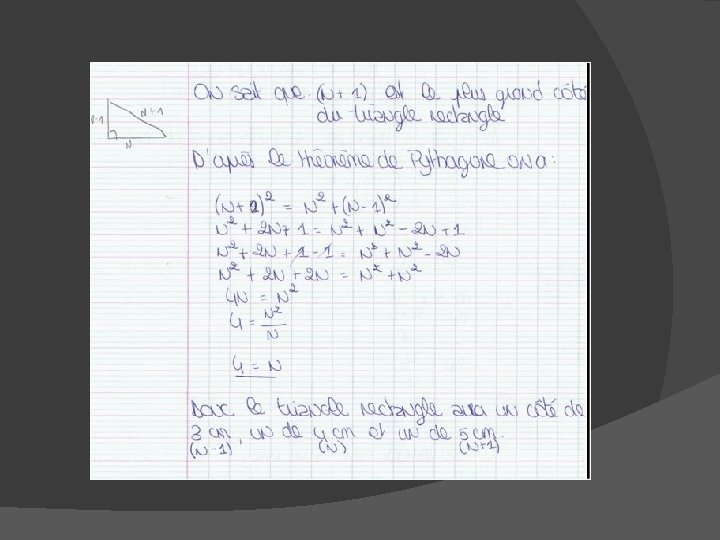 On sait que (N+1) est le plus grand côté
du triangle rectangle
N-1
N+1
N
D'après le théorème de Pythagore on a :
(N+1)² = N² + (N-1)²
N² + 2N + 1 = N² + N² - 2N + 1
N² + 2N + 1 - 1 = N² + N² - 2N
N² + 2N + 2N = N² + N²
4N = N²
4 = N²/N
4 = N
Donc le triangle rectangle aura un côté de
3 cm, un de 4 cm et un de 5 cm.
(N-1) (N) (N+1)